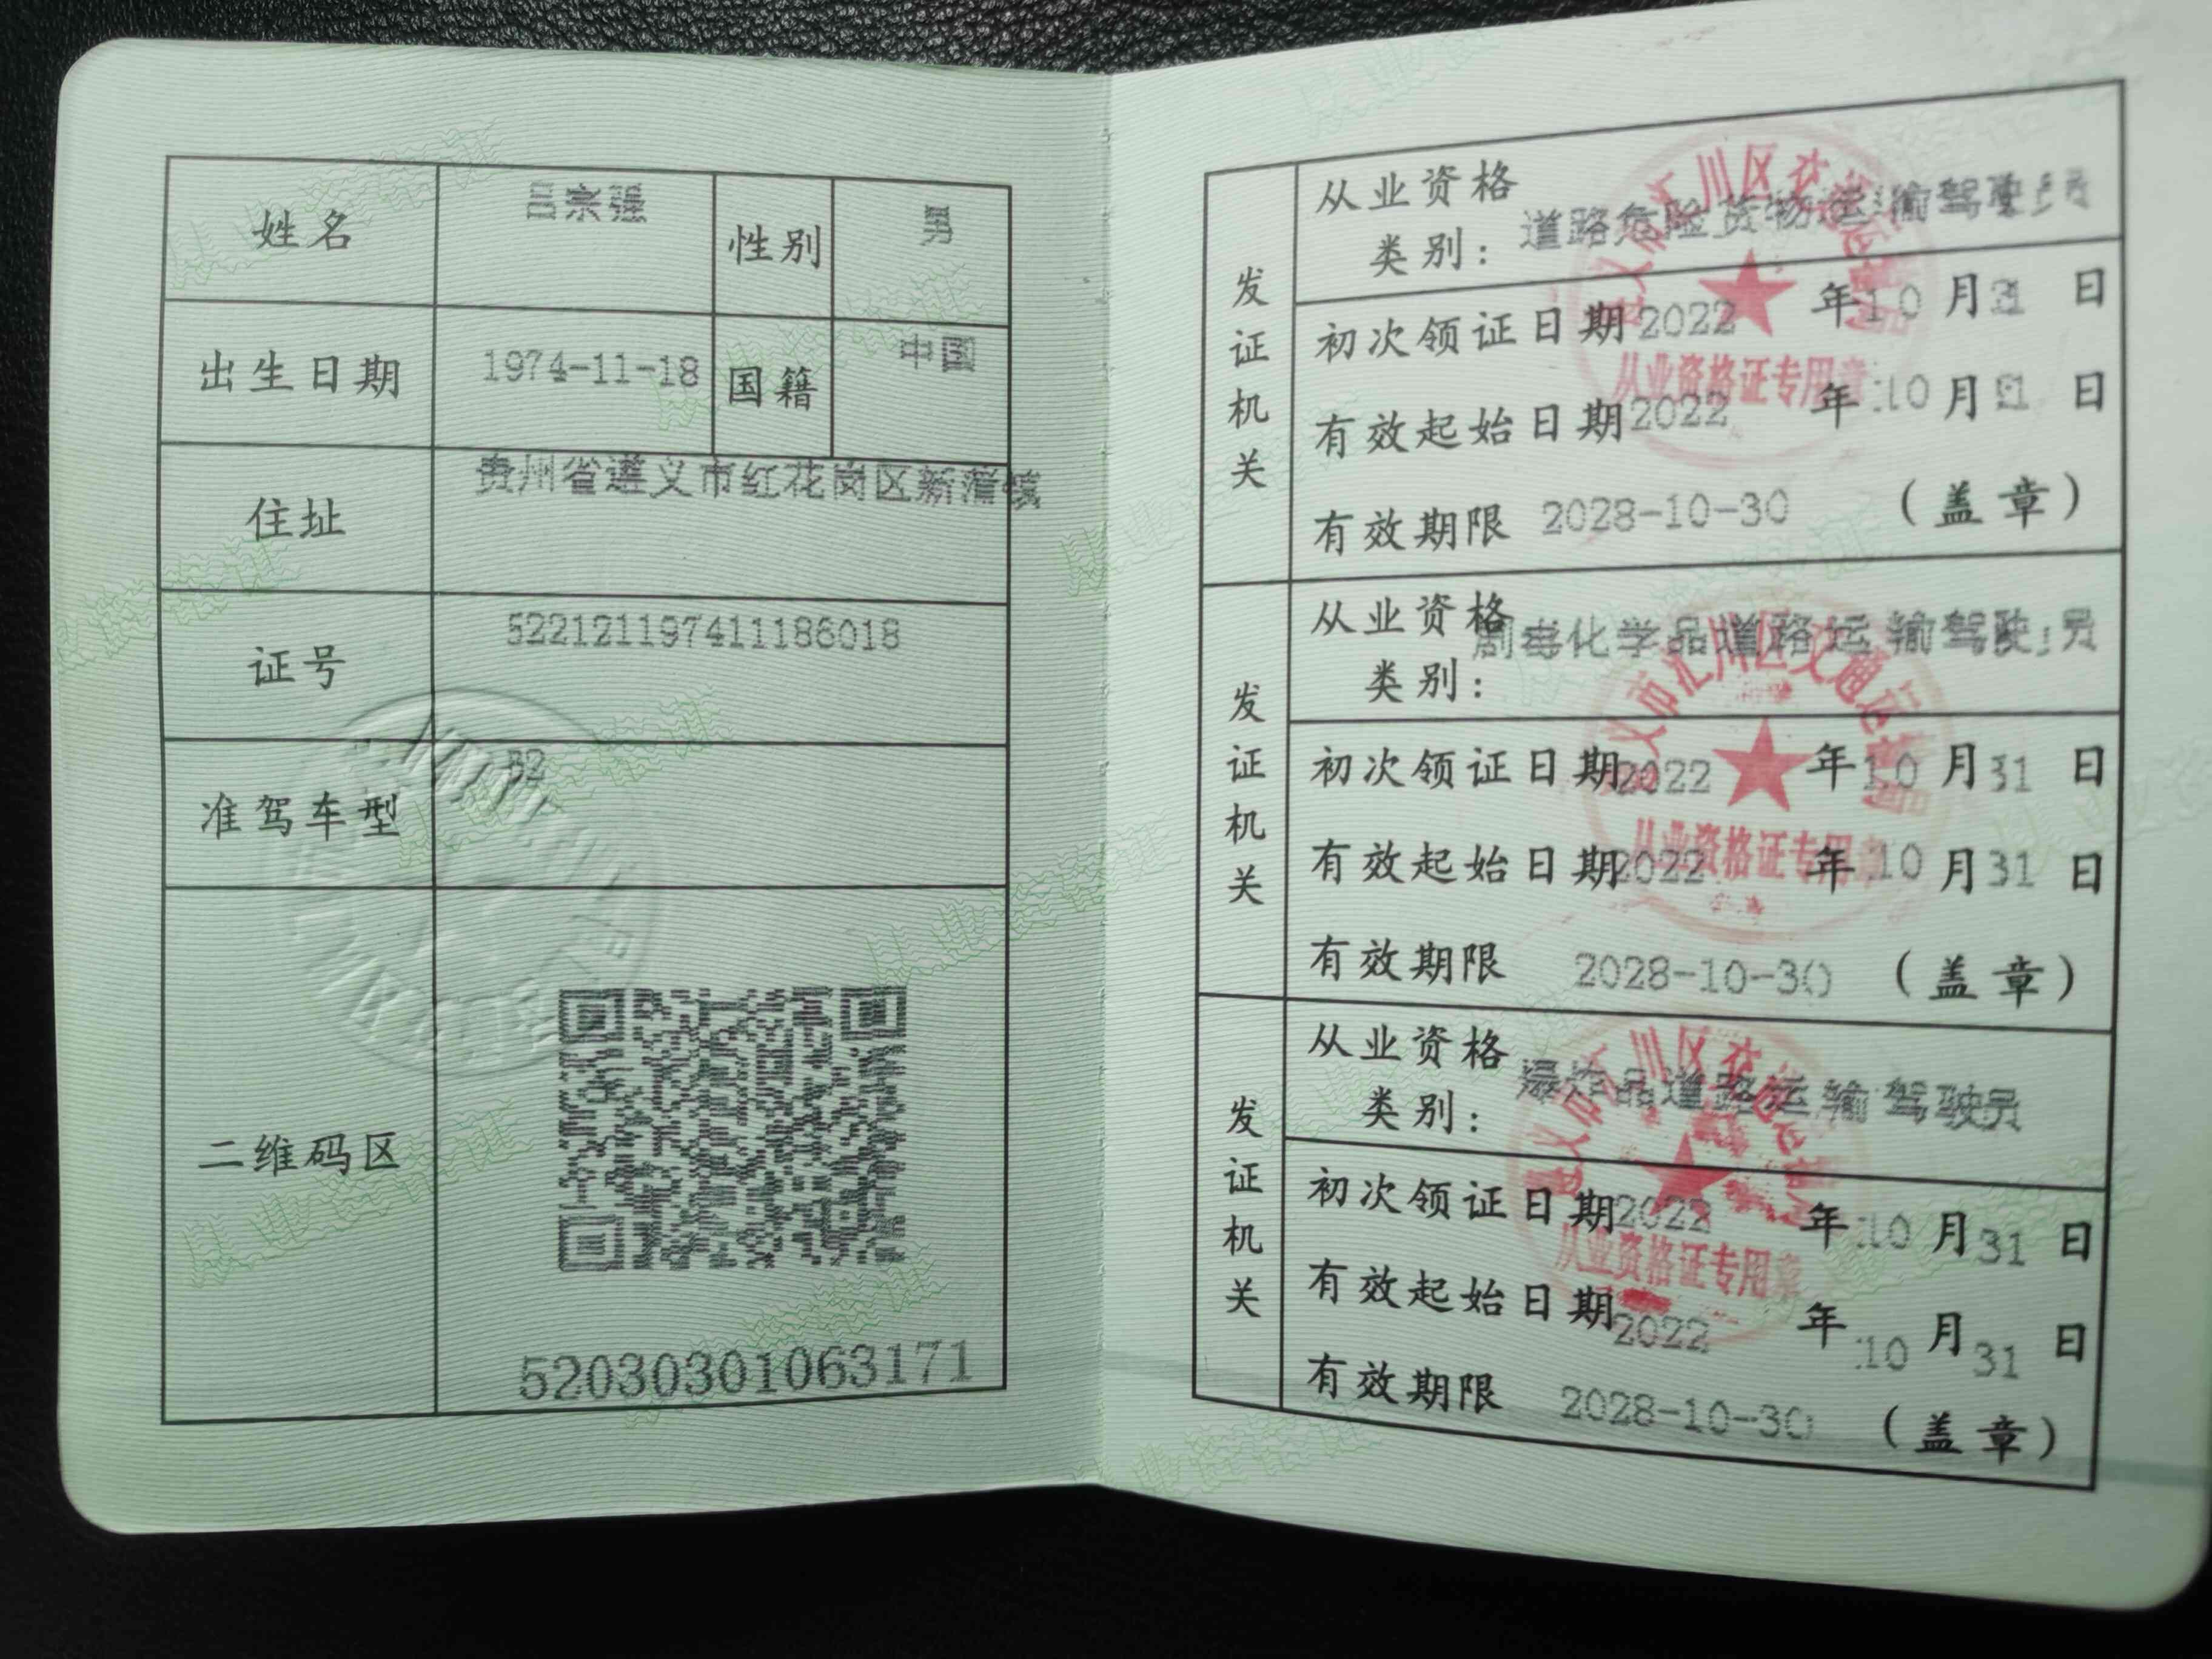 姓名 吕宗强 性别 男
出生日期 1974-11-18 国籍 中国
住址 贵州省遵义市红花岗区新蒲镇
证号 522121197411186018
准驾车型 B2
二维码区
52030301063171
发证机关
从业资格
类别： 道路危险货物运输驾驶员
初次领证日期 2022 年 10 月 31 日
有效起始日期 2022 年 10 月 31 日
有效期限 2028-10-30 （盖章）
遵义市汇川区交通运
从业资格证专用章
发证机关
从业资格
类别： 剧毒化学品道路运输驾驶员
初次领证日期 2022 年 10 月 31 日
有效起始日期 2022 年 10 月 31 日
有效期限 2028-10-30 （盖章）
遵义市汇川区交通运
从业资格证专用章
发证机关
从业资格
类别： 爆炸品道路运输驾驶员
初次领证日期 2022 年 10 月 31 日
有效起始日期 2022 年 10 月 31 日
有效期限 2028-10-30 （盖章）
遵义市汇川区交通运
从业资格证专用章